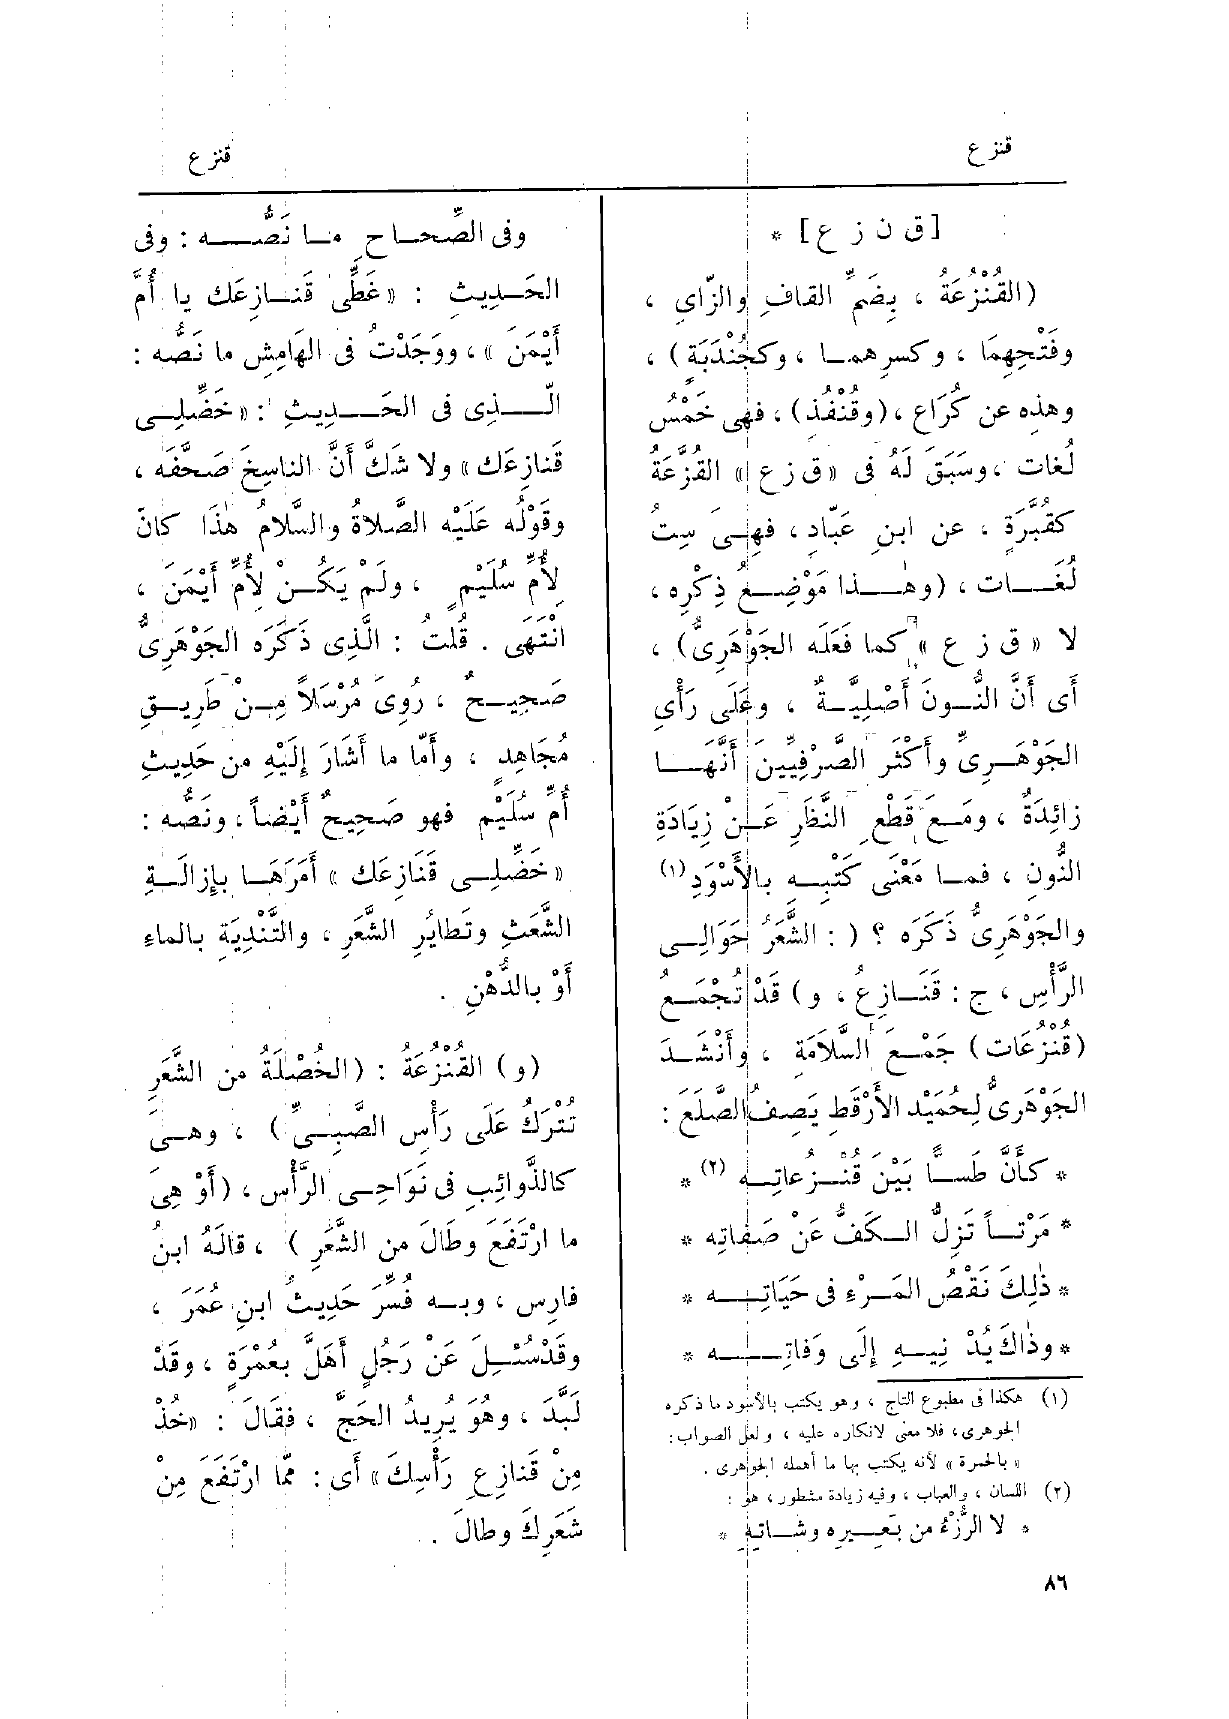 قنزع
قنزع
[ق ن ز ع] *
(القُنْزُعَةُ ، بِضَمِّ القافِ والزّاىِ ،
وفَتْحِهِمَا ، وكسرِهمــا ، وكجُنْدَبَةٍ) ،
وهذِه عن كُرَاع ، (وقُنْفُذٍ) ، فهى خَمْسُ
لُغات ، وسَبَقَ لَهُ فى «ق ز ع» القُزَّعَةُ
كقُبَّرَةٍ ، عن ابنِ عَبّادٍ ، فهِـىَ سِتُّ
لُغَــات ، (وهٰــذا مَوْضِــعُ ذِكْرِه ،
لا «ق ز ع» كما فَعَلَه الجَوْهَرِىُّ) ،
أَى أَنَّ النُّــونَ أَصْلِيَّــةٌ ، وعَلَى رَأْىِ
الجَوْهَــرِىِّ وأَكْثَرِ الصَّرْفِيِّينَ أَنَّهَــا
زائِدَةٌ ، ومَـعَ قَطْعِ النَّظَرِ عَــنْ زِيَادَةِ
النُّونِ ، فمــا مَعْنَى كَتْبِــهِ بالأَسْوَدِ (١)
والجَوْهَرِىُّ ذَكَرَه ؟ ( : الشَّعَرُ حَوَالِــى
الرَّأْسِ ، ج : قَنَــازِعُ ، و) قَدْ تُجْمَــعُ
(قُنْزُعَات) جَمْـعَ السَّلامَةِ ، وأَنْشَــدَ
الجَوْهَرِىُّ لِحُمَيْدِ الأَرْقَطِ يَصِفُ الصَّلَعَ :
* كأَنَّ طَسًّـا بَيْنَ قُنْــزُعاتِــهِ (٢) *
* مَرْتــاً تَزِلُّ الــكَفُّ عَنْ صَفَاتِه *
* ذٰلِكَ نَقْصُ المَــرْءِ فى حَيَاتِــهِ *
* وذَاكَ يُدْنِيــهِ إِلَى وَفَاتِــــهِ *
(١) هكذا فى مطبوع التاج ، وهو يكتب بالأسود ما ذكره
الجوهرى، فلا معنى لانكاره عليه ، ولعل الصواب :
« بالحمرة » لأنه يكتب بها ما أهمله الجوهرى .
(٢) اللسان ، والعباب ، وفيه زيادة مشطور ، هو :
* لا الرُّزْءُ من بَعِــيرِه وشــاتِهِ *
٨٦
وفى الصِّحــاحِ مــا نَصُّـــه : وفى
الحَــدِيثِ : «غَطِّى قَنَــازِعَك يا أُمَّ
أَيْمَنَ » ، ووَجَدْتُ فى الهَامِشِ ما نَصُّه :
الَّــــذِى فى الحَـــدِيثِ : «خَضِّلِــى
قَنَازِعَك» ولا شَكَّ أَنَّ النّاسِخَ صَحَّفَه ،
وقَوْلُه عَلَيْه الصَّلاةُ والسَّلامُ هٰذَا كانَ
لِأُمِّ سُلَيْمٍ ، ولَمْ يَكُــنْ لِأُمِّ أَيْمَنَ ،
انْتَهَى . قُلتُ : الَّذِى ذَكَرَه الجَوْهَرِىُّ
صَحِيــحٌ ، رُوِىَ مُرْسَلاً مِــنْ طَرِيــقِ
مُجَاهِدٍ ، وأَمّا ما أَشَارَ إِلَيْهِ من حَدِيثِ
أُمِّ سُلَيْمٍ فهو صَحِيحٌ أَيْضاً ، ونَصُّه :
« خَضِّلِــى قَنَازِعَك » أَمَرَهَــا بإِزالَــةِ
الشَّعَثِ وتَطايُرِ الشَّعَرِ ، والتَّنْدِيَةِ بالماءِ
أَوْ بالدُّهْنِ .
(و) القُنْزُعَةُ : (الخُصْلَةُ من الشَّعَرِ
تُتْرَكُ عَلَى رَأْسِ الصَّبِــىِّ) ، وهــىَ
كالذَّوائِبِ فى نَوَاحِــى الرَّأْسِ ، (أَوْ هِىَ
ما ارْتَفَعَ وطَالَ من الشَّعَرِ ) ، قالَهُ ابنُ
فارِس ، وبــه فُسِّرَ حَدِيثُ ابنِ عُمَرَ ،
وقَدْ سُئِــلَ عَنْ رَجُلٍ أَهَلَّ بعُمْرَةٍ ، وقَدْ
لَبَّدَ ، وهُوَ يُرِيدُ الحَجَّ ، فقَالَ : «خُذْ
مِنْ قَنازِعِ رَأْسِكَ» أَى : ممّا ارْتَفَعَ مِنْ
شَعَرِكَ وطالَ .